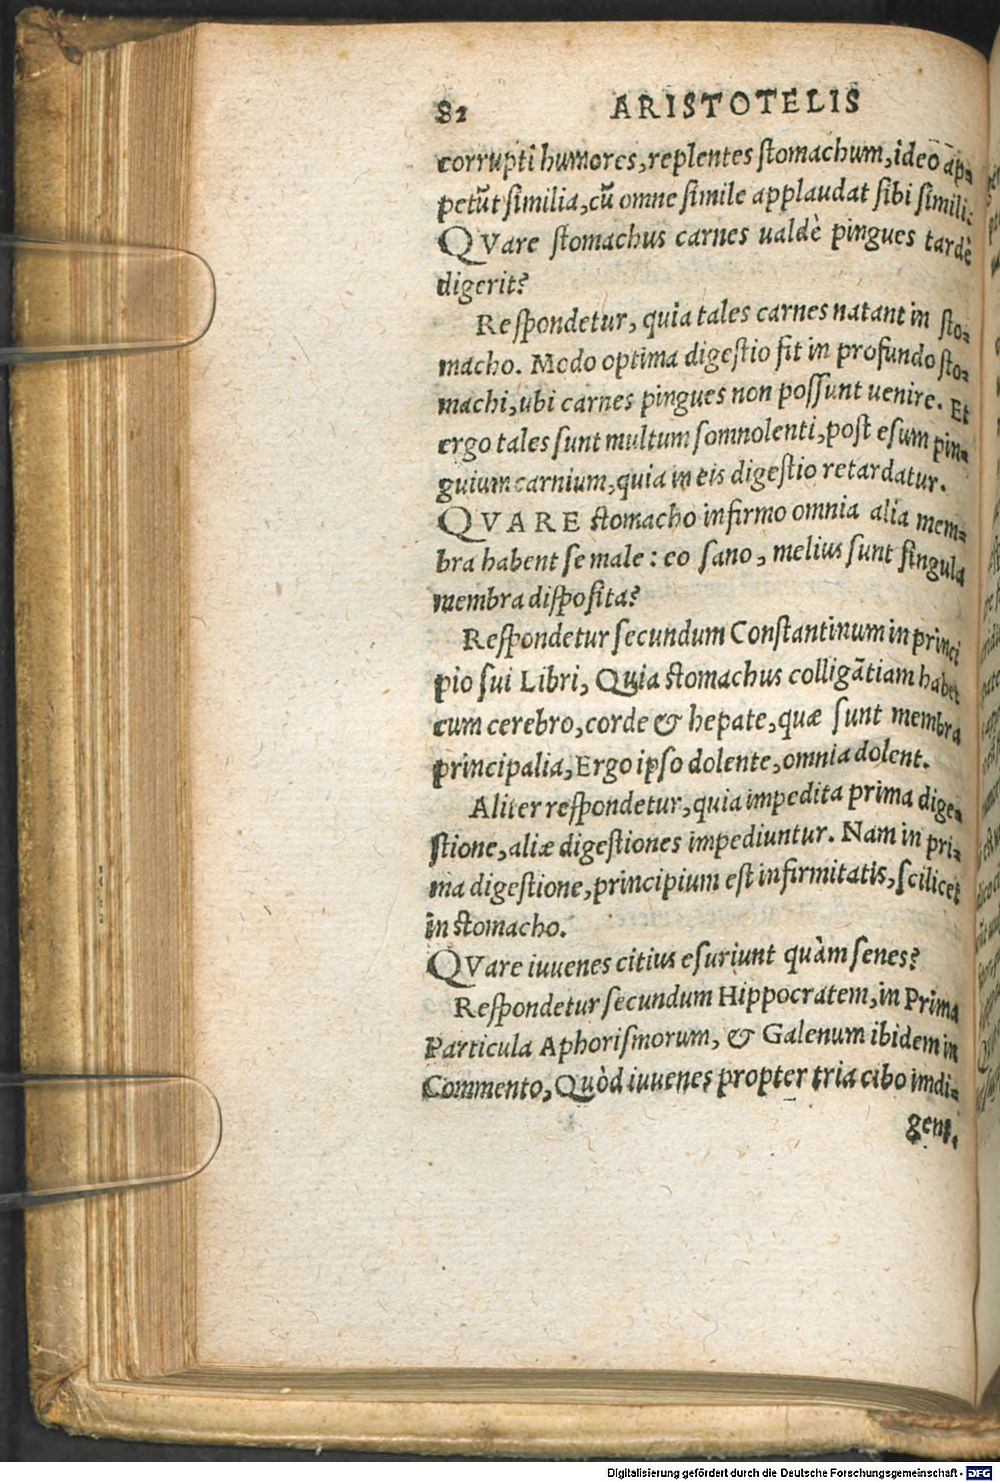 82 ARISTOTELIS
corrupti humores, replentes stomachum, ideo ap-
petũt similia, cũ omne simile applaudat sibi simili:
QVare stomachus carnes ualdè pingues tardè
digerit?
Respondetur, quia tales carnes natant in sto-
macho. Modo optima digestio fit in profundo sto-
machi, ubi carnes pingues non possunt uenire. Et
ergo tales sunt multum somnolenti, post esum pin-
guium carnium, quia in eis digestio retardatur.
QVARE stomacho infirmo omnia alia mem-
bra habent se male: eo sano, melius sunt singula
membra disposita?
Respondetur secundum Constantinum in princi
pio sui Libri, Quia stomachus colligãtiam habet
cum cerebro, corde & hepate, quæ sunt membra
principalia, Ergo ipso dolente, omnia dolent.
Aliter respondetur, quia impedita prima dige-
stione, aliæ digestiones impediuntur. Nam in pri-
ma digestione, principium est infirmitatis, scilicet
in stomacho.
QVare iuuenes citius esuriunt quàm senes?
Respondetur secundum Hippocratem, in Prima
Particula Aphorismorum, & Galenum ibidem in
Commento, Quòd iuuenes propter tria cibo indi-
gent,
Digitalisierung gefördert durch die Deutsche Forschungsgemeinschaft - DFG